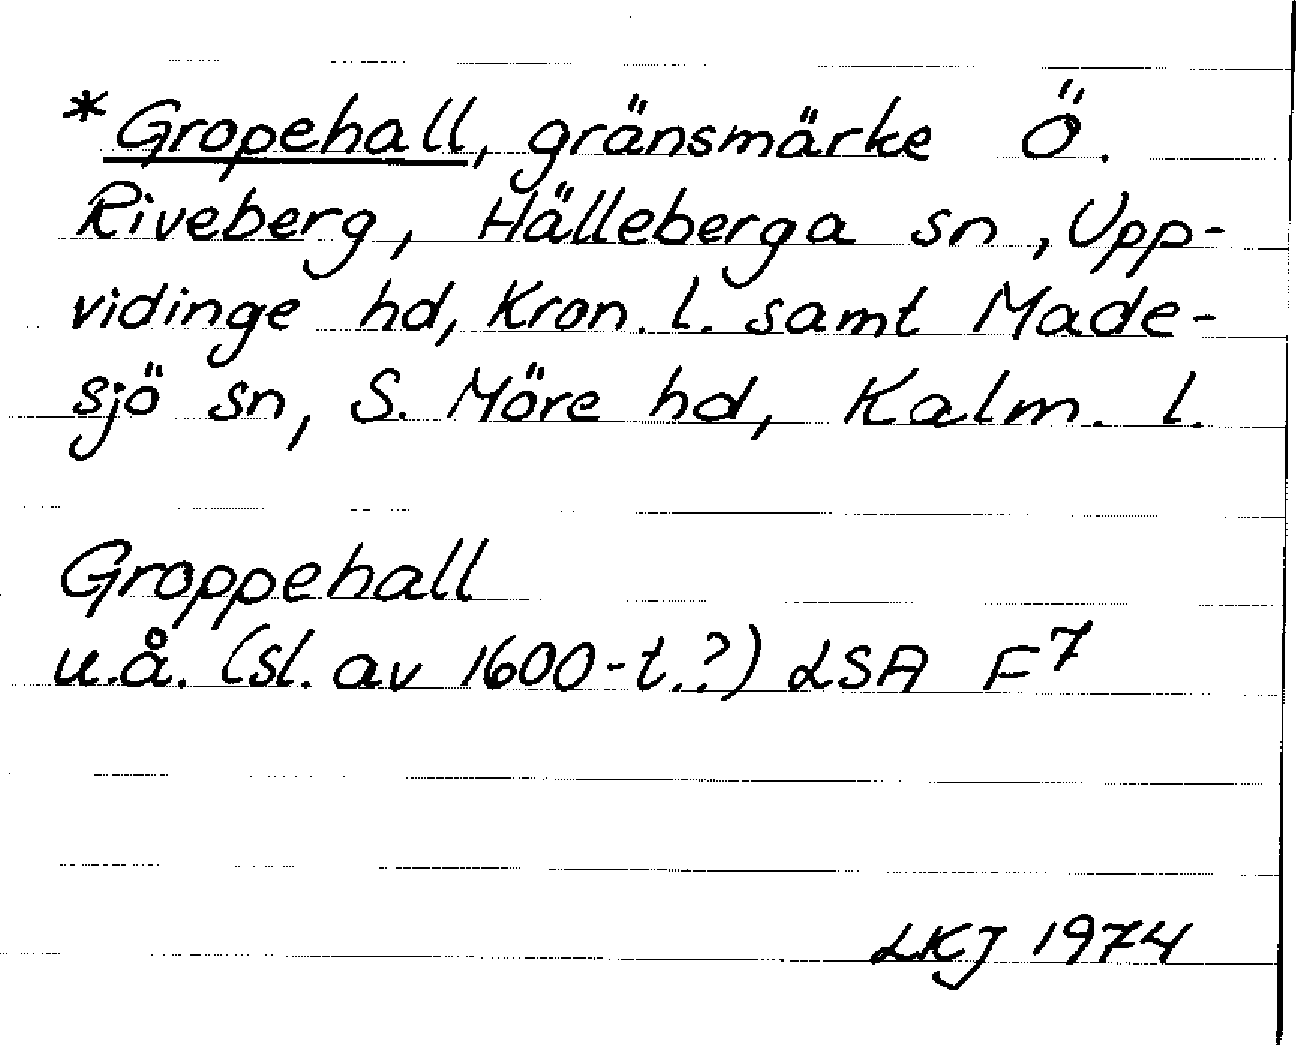 *Gropehall, gränsmärke Ö.
Riveberg, Hälleberga sn, Upp-
vidinge hd, Kron. l. samt Made-
sjö sn, S. Möre hd, Kalm. l.
Groppehall
u.å. (sl. av 1600-t.?) LSA F7
LKJ 1974